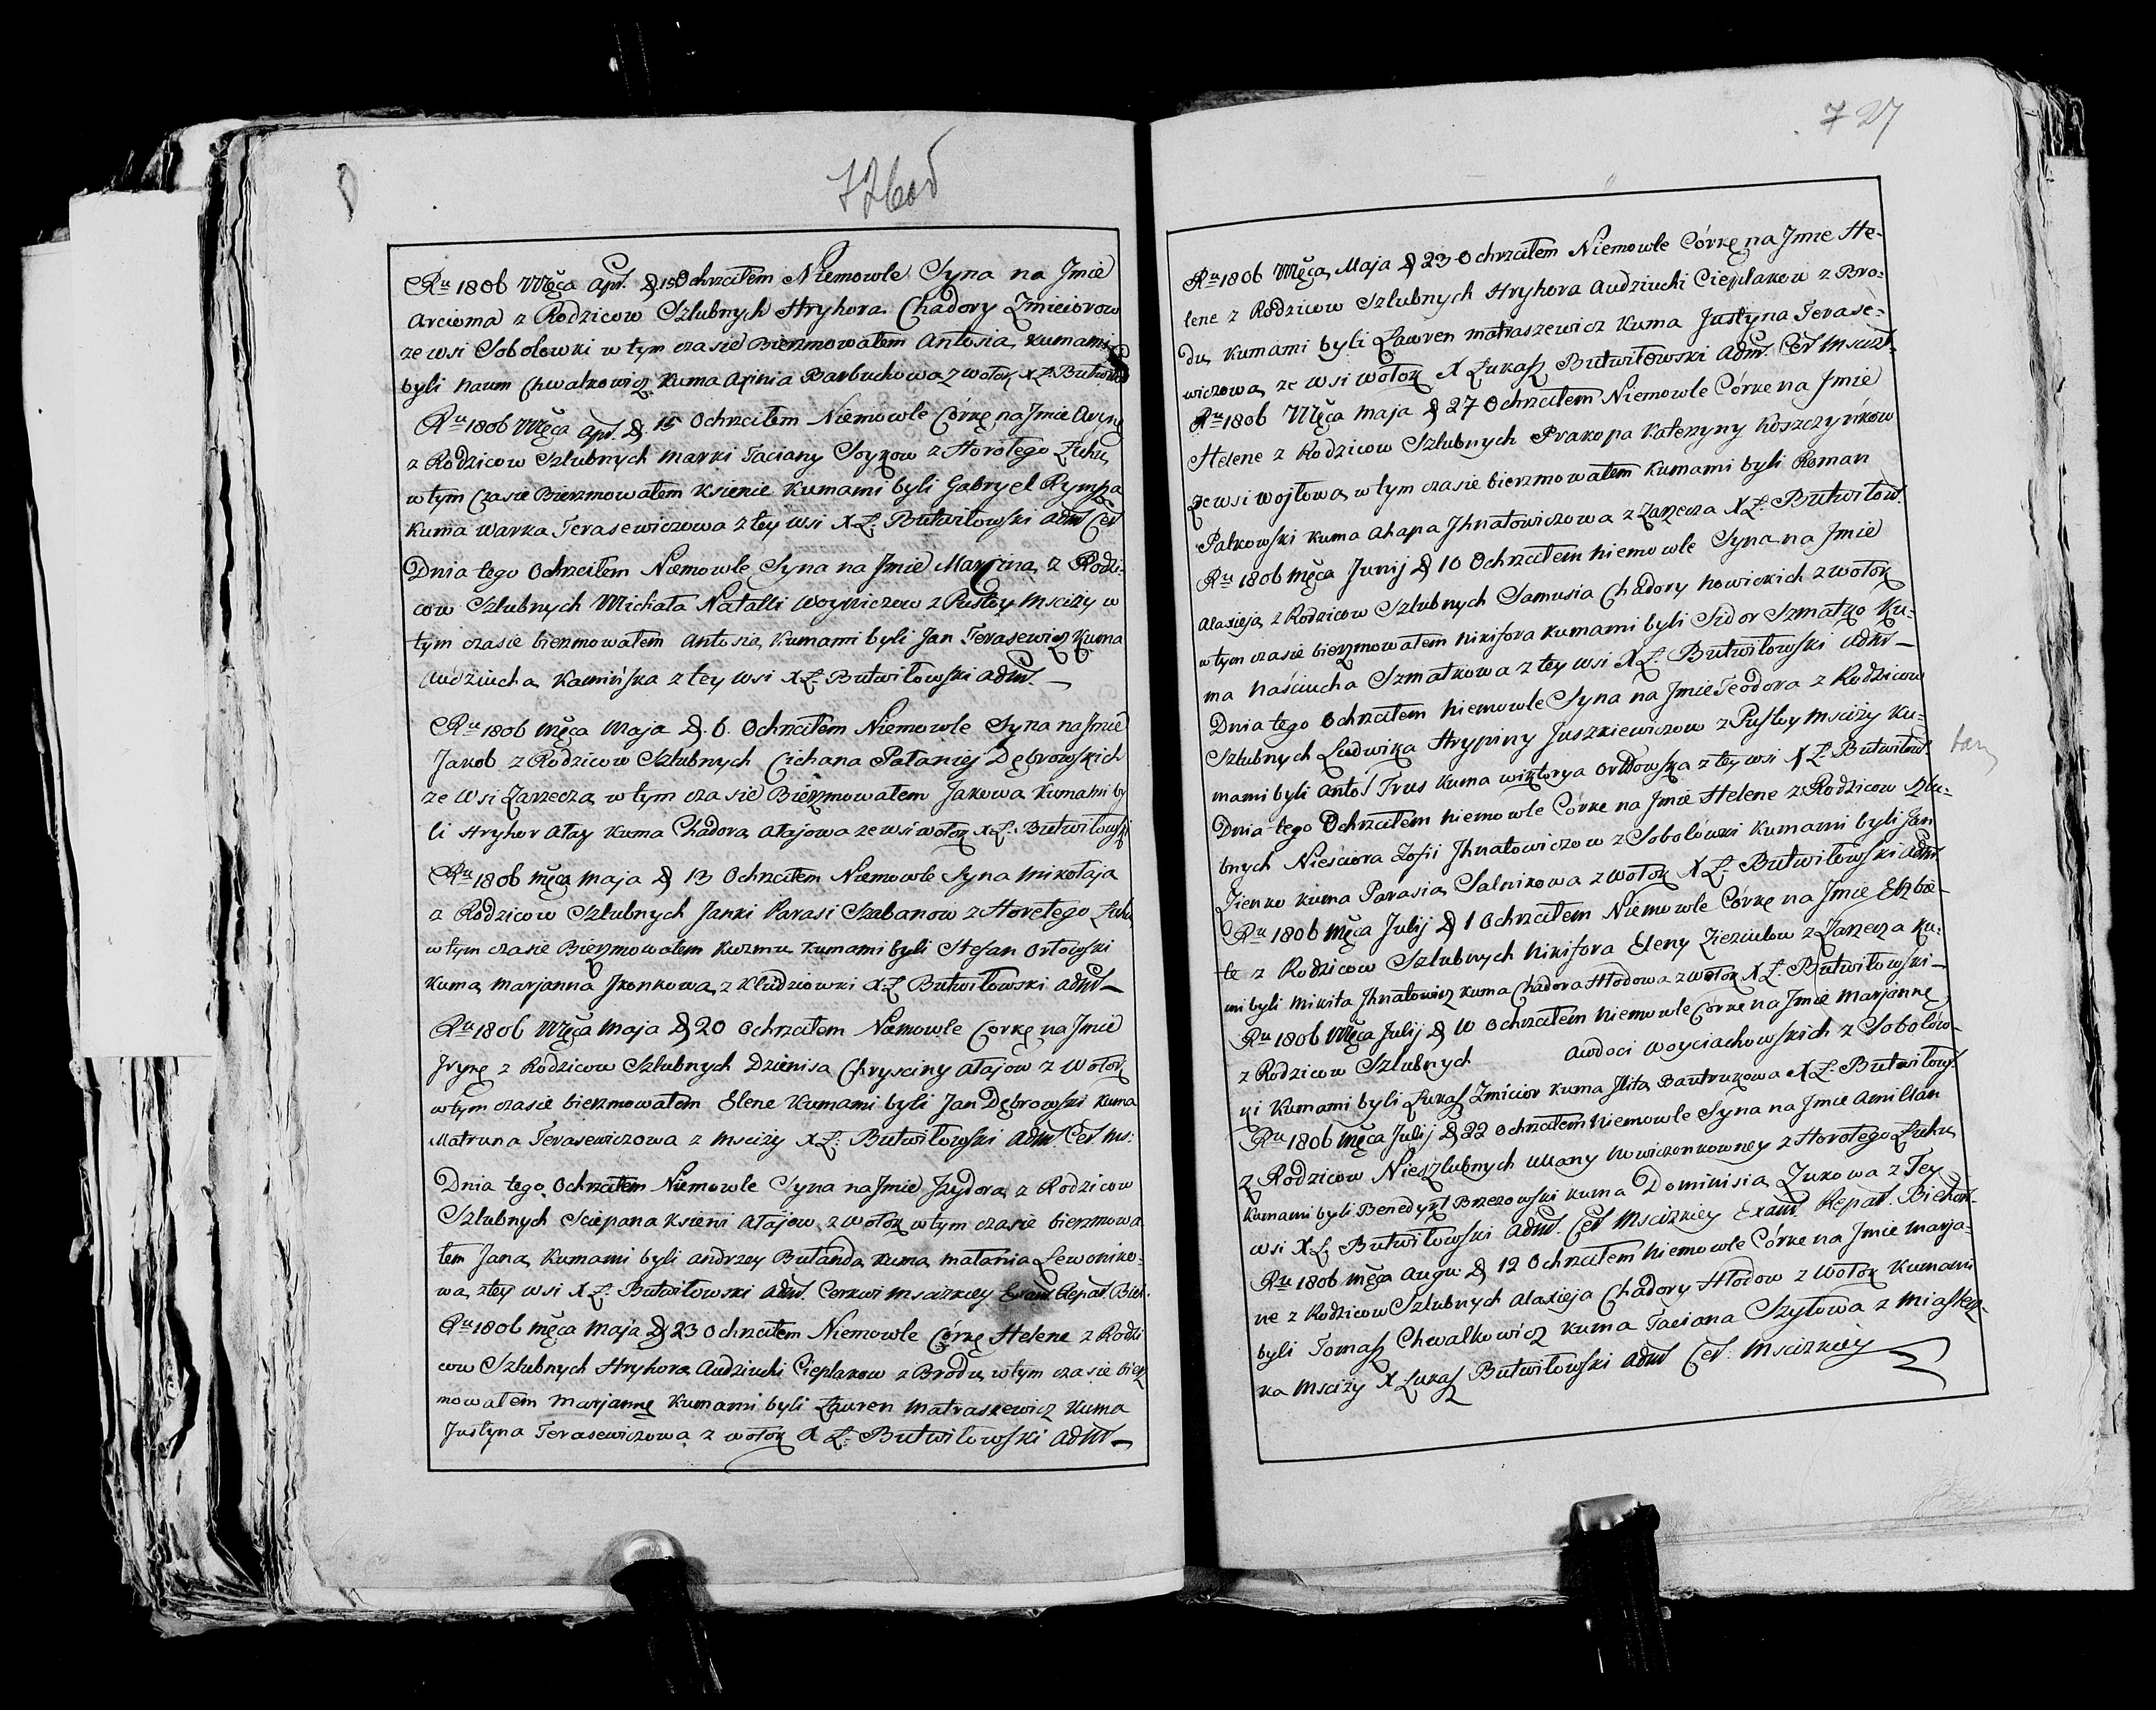 726 od
Ru 1806 Męca Apr. D 15 Ochrzciłem Niemowle Syna na Jmie
Arcioma z Rodzicow Szlubnych Hryhora Chadory Zmiciorow
ze wsi Sobolowki w tym czasie Bierzmowałem Antosia, Kumami
byli Naum Chwalkowicz Kuma Axinia Barbuchowa z Wołok X Ł:
Ru 1806 Męca Apr. D. 15 Ochrzciłem Niemowle Córkę na Jmie
z Rodzicow Szlubnych Marki Taciany Soykow z Horołego Łuhu
w tym Czasie Bierzmowałem Ksienie Kumami byli Gabryel
Kuma Warka Terasewiczowa z tey wsi X Ł: Butwiłowski Adm. Cer
Dnia tego Ochrzciłem Niemowle Syna na Jmie Marcina z Rodzi-
cow Szlubnych Michała Natalli Woyniczow z Pustoy Mscizy w
tym czasie bierzmowałem Antosia, Kumami byli Jan Terasewicz Kuma
Audziucha Kamińska z tey wsi X Ł. Butwiłowski Adm. —
Ru 1806 Męca Maja D. 6. Ochrzciłem Niemowle Syna na Jmie
Jakob z Rodzicow Szlubnych Cichana Pałaniej Dębrowskich
ze Wsi Zarzecza w tym czasie Bierzmowałem Jakowa Kumami by
li Hryhor Ałay Kuma Chadora Ałajowa ze wsi Wołok X Ł: Butwiłowski
Ru 1806 Męca Maja D 13 Ochrzciłem Niemowle Syna Mikołaja
z Rodzicow Szlubnych Janki Parasi Szabanow z Horełego Łuhu
w tym czasie Bierzmowałem Kuzmu Kumami byli Stefan Orłowski
Kuma Marjanna Jkonkowa z Kludziowki X Ł Butwiłowski Adm —
Ru 1806 Męca Maja D 20 Ochrzciłem Niemowle Corkę na Jmie
Jrynę z Rodzicow Szlubnych Dzienisa Chrysciny Ałajow z Wołok
w tym czasie bierzmowałem Elene Kumami byli Jan Dębrowski Kuma
Matruna Terasewiczowa z Mscizy X Ł: Butwiłowski Adm. Cer Ms:
Dnia tego Ochrzciłem Niemowle Syna na Jmie Jzydora z Rodzicow
Szlubnych Sciepana Ksieni Ałajow z Wołok w tym czasie bierzmowa
łem Jana, Kumami byli Andrzey Bułanda Kuma Małania Lewoniko-
wa z tey wsi X Ł: Butwiłowski Adm. Cerkwi Mscizkiey Exam Repar.
Ru 1806 Męca Maja D 23 Ochrzciłem Niemowle Córkę Helene z Rodzi
cow Szlubnych Hryhora Audziuchi Cieplakow z Brodu w tym czasie bierz
mowałem Marjannę Kumami byli Ławren Matraszewicz Kuma
Justyna Terasewiczowa z Wołok X Ł: Butwiłowski Adm —
727
Ru 1806 Męca Maja D 23 Ochrzciłem Niemowle Córkę na Jmie He-
lene z Rodzicow Szlubnych Hryhora Audziuchi Cieplakow z Bro-
du, Kumami byli Ławren Matraszewicz Kuma Justyna Terase-
wiczowa ze Wsi Wołok X Łukasz Butwiłowski Adm. Cer Mscizk.
Ru 1806 Męca Maja D 27 Ochrzciłem Niemowle Córke na Jmie
Helene z Rodzicow Szlubnych Prakopa Katerzyny Koszczyńkow
ze wsi Wojtowa w tym czasie bierzmowałem Kumami byli Roman
Pałkowski Kuma Ahapa Jhnatowiczowa z Zarzecza X Ł: Butwiłow.
Ru 1806 Męca Junij D 10 Ochrzciłem Niemowle Syna na Jmie
Alaxieja z Rodzicow Szlubnych Samusia Chadory Nowickich z Wołok
w tym czasie bierzmowałem Nikifora Kumami byli Sidor Szmatko Ku-
ma Naściucha Szmatkowa z tey wsi X Ł: Butwiłowski Adm —
Dnia tego Ochrzciłem Niemowle Syna na Jmie Teodora z Rodzicow
Szlubnych Ludwika Hrypiny Juszkiewiczow z Pustoy Mscizy Ku-
mami byli Antoś Trus Kuma Wiktorya Orłowska z tey wsi X Ł: Butwiłow
Dnia tego Ochrzciłem Niemowle Córke na Jmie Helene z Rodzicow Szlu-
bnych Nieściora Zofii Jhnatowiczow z Sobolówki Kumami byli Jan
Zienko Kuma Parasia Salnikowa z Wołok X Ł: Butwiłowski Adm
Ru 1806 Męca Julij D 1 Ochrzciłem Niemowle Córkę na Jmie Elzbie-
te z Rodzicow Szlubnych Nikifora Eleny Zieziulow z Zarzecza Ku-
mi byli Mikita Jhnatowicz Kuma Chadora Hłodowa z Wołok X Ł: Butwiłowski —
Ru 1806 Męca Julij D 10 Ochrzciłem Niemowle Córke na Jmie Marjannę
z Rodzicow Szlubnych Awdoci Woyciachowskich z Sobolów-
ki Kumami byli Łukasz Zmicior Kuma Jlita Bautrukowa X Ł: Butwiłows.
Ru 1806 Męca Julij D 22 Ochrzciłem Niemowle Syna na Jmie Amilian
z Rodzicow Nieszlubnych Ullany Nowiczonkowney z Horołego Łuhu
Kumami byli Benedykt Brzezowski Kuma Dominisia Zukowa z Tey
wsi X Ł: Butwiłowski Adm. Cer Mscizkiey Exam. Repar.
Ru 1806 Męca Augu: D 12 Ochrzciłem Niemowle Córke na Jmie Marja-
ne z Rodzicow Szlubnych Alaxieja Chadory Hłodow z Wołok Kumami
byli Tomasz Chwalkowicz Kuma Taciana Szyłowa z Miastecz-
ka Mscizy X Łukasz Butwiłowski Adm Cer. Mscizkiey